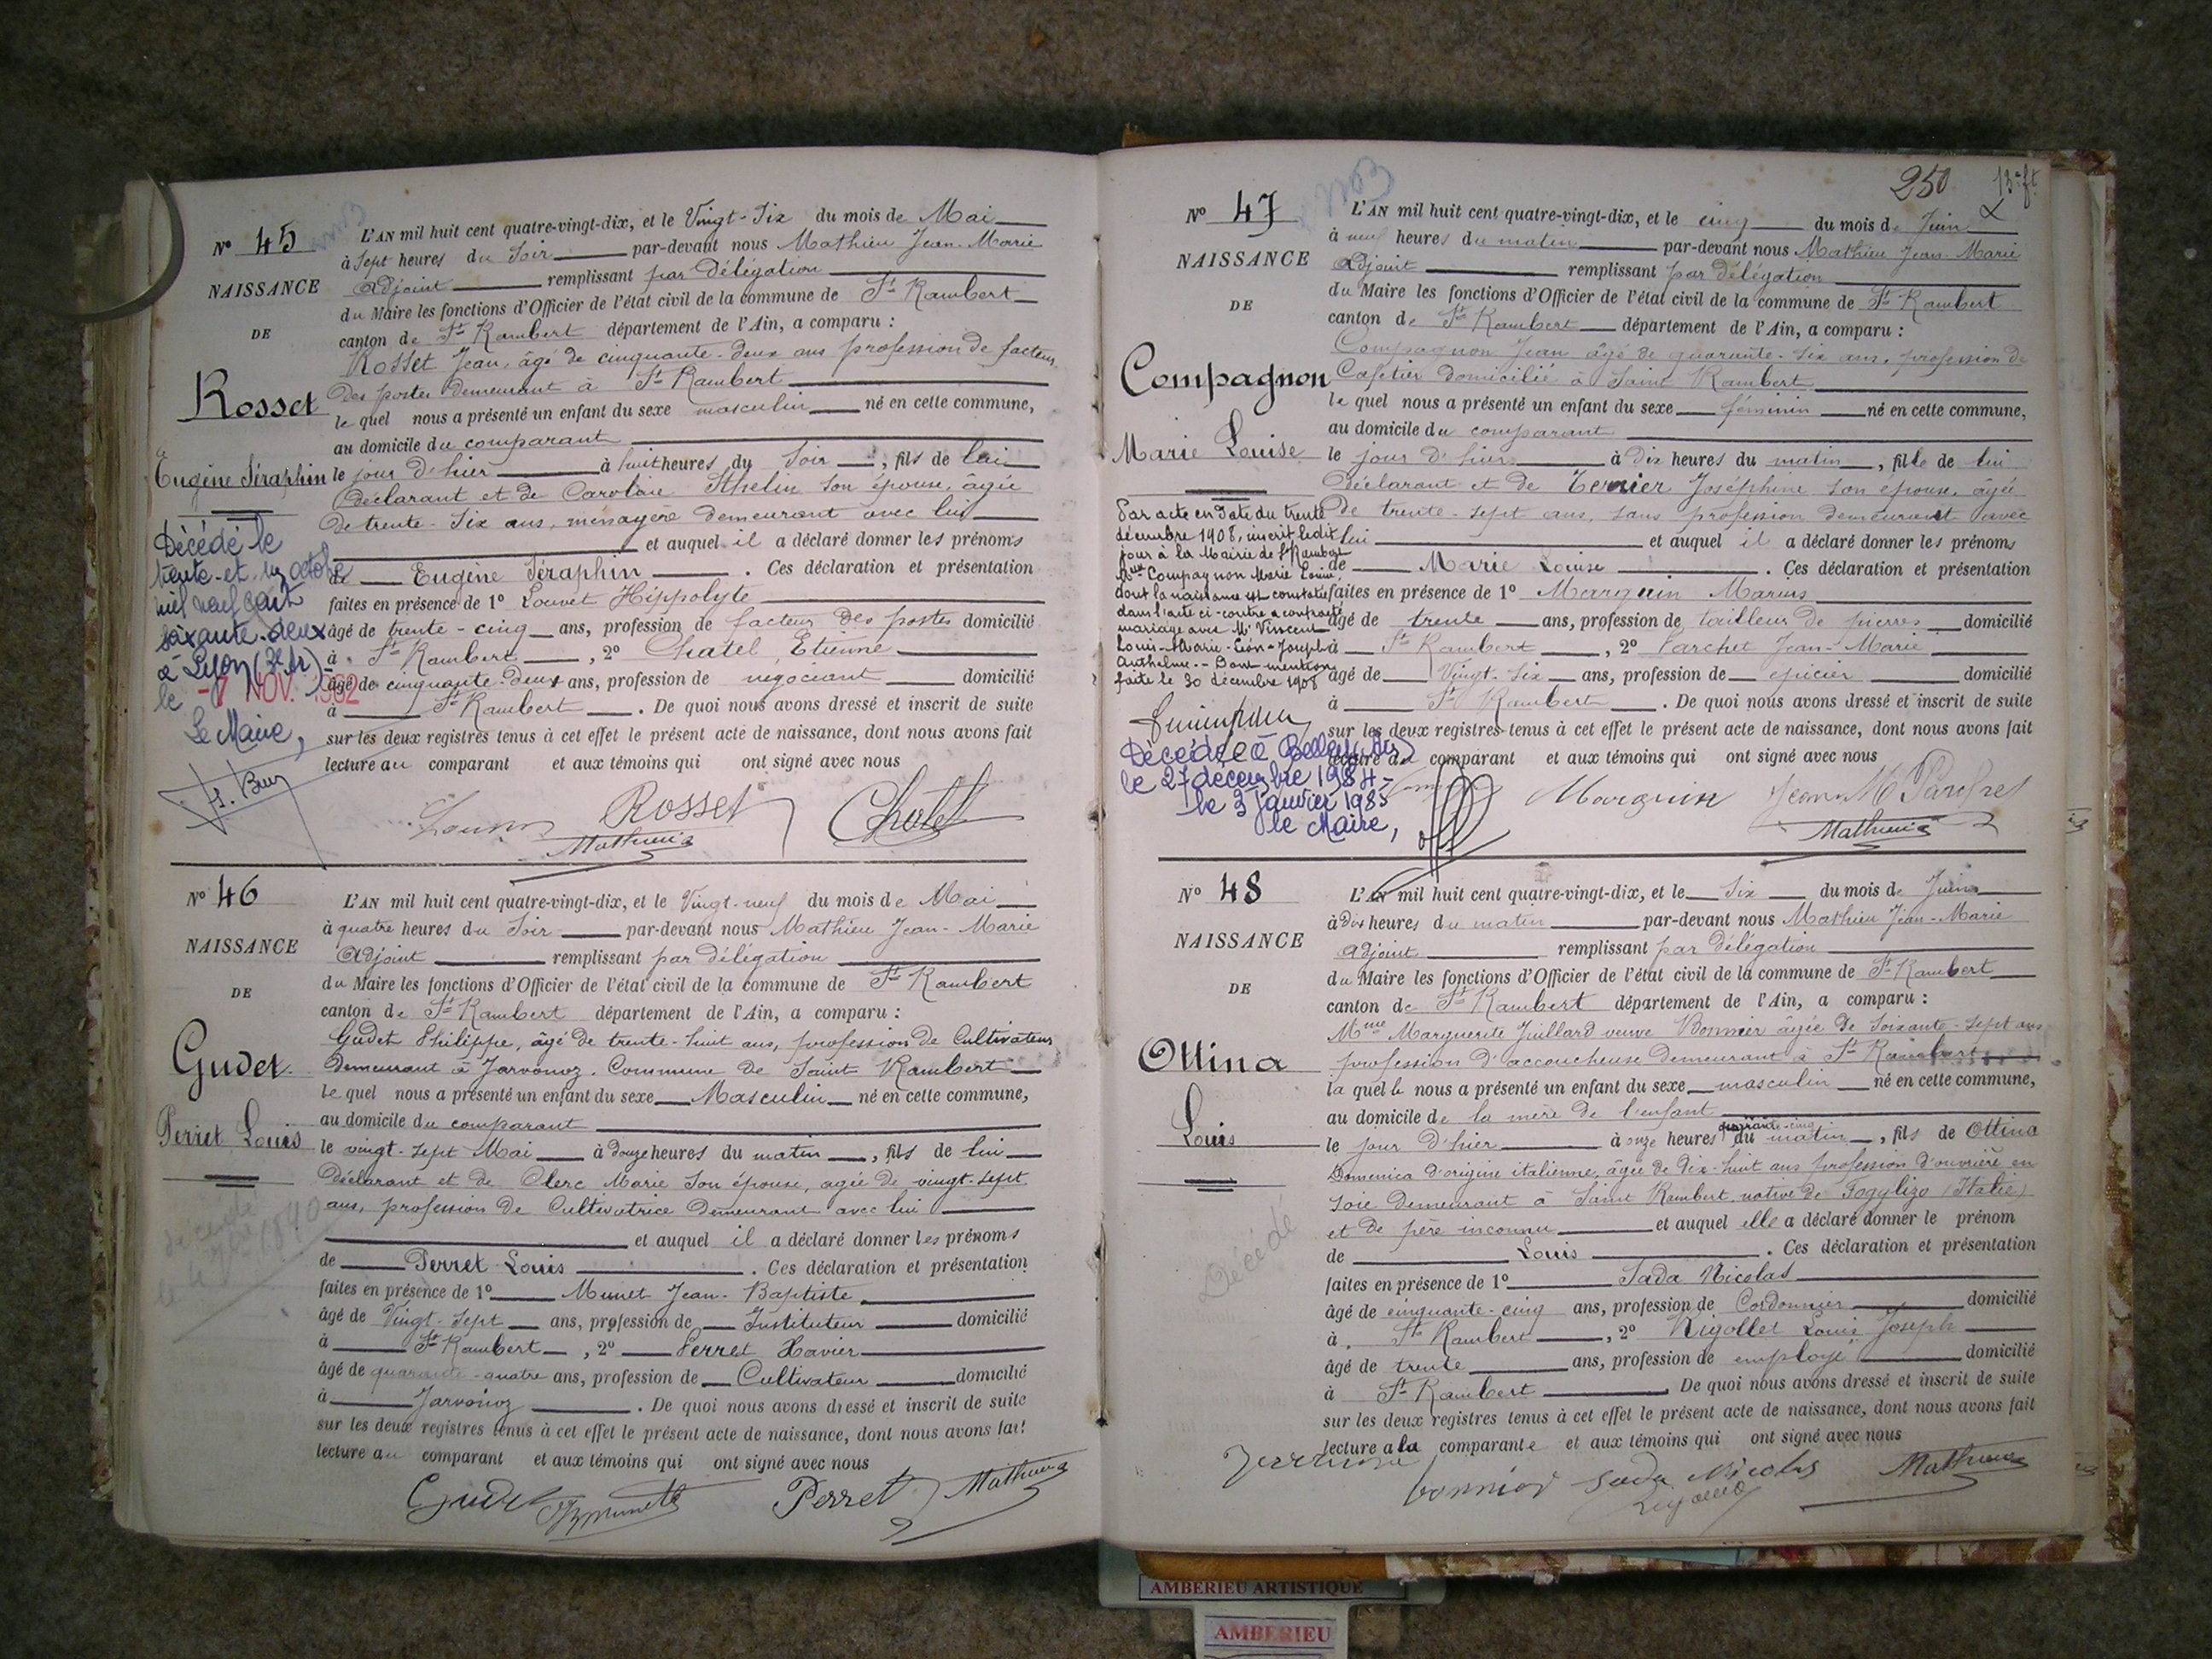 N° 45
NAISSANCE
DE
Rosset
Eugène Séraphin
Décédé le
trente-et-un octobre
mil neuf cent
soixante-deux
à Lyon (3e Ar)
le -7 NOV. 1962
Le Maire,
L'AN mil huit cent quatre-vingt-dix, et le Vingt-Six du mois de Mai
à Sept heures du Soir par-devant nous Mathieu Jean-Marie
Adjoint remplissant par délégation
du Maire les fonctions d'Officier de l'état civil de la commune de St Rambert
canton de St Rambert département de l'Ain, a comparu :
Rosset Jean, âgé de cinquante-deux ans profession de facteur
des postes demeurant à St Rambert
le quel nous a présenté un enfant du sexe masculin né en cette commune,
au domicile du comparant
le jour d'hier à huit heures du Soir, fils de lui
déclarant et de Caroline son épouse, agée
de trente-six ans, ménagère demeurant avec lui
et auquel il a déclaré donner les prénoms
de Eugène Séraphin. Ces déclaration et présentation
faites en présence de 1° Louvet Hippolyte
âgé de trente-cinq ans, profession de facteur des postes domicilié
à St Rambert, 2° Chatel Etienne
âgé de cinquante-deux ans, profession de négociant domicilié
à St Rambert. De quoi nous avons dressé et inscrit de suite
sur les deux registres tenus à cet effet le présent acte de naissance, dont nous avons fait
lecture au comparant et aux témoins qui ont signé avec nous
Rosset Chatel
Mathieu
N° 46
NAISSANCE
DE
Gudet
Perret Louis
L'AN mil huit cent quatre-vingt-dix, et le Vingt-neuf du mois de Mai
à quatre heures du Soir par-devant nous Mathieu Jean-Marie
Adjoint remplissant par délégation
du Maire les fonctions d'Officier de l'état civil de la commune de St Rambert
canton de St Rambert département de l'Ain, a comparu :
Gudet Philippe, âgé de trente-huit ans, profession de Cultivateur
demeurant à Javornoz. Commune de Saint Rambert
le quel nous a présenté un enfant du sexe Masculin né en cette commune,
au domicile du comparant
le vingt-sept Mai à douze heures du matin, fils de lui
déclarant et de Clerc Marie son épouse, agée de vingt-sept
ans, profession de Cultivatrice demeurant avec lui
et auquel il a déclaré donner les prénoms
de Perret Louis. Ces déclaration et présentation
faites en présence de 1° Munet Jean-Baptiste
âgé de Vingt-sept ans, profession de Instituteur domicilié
à St Rambert, 2° Perret Xavier
âgé de quarante-quatre ans, profession de Cultivateur domicilié
à Javornoz. De quoi nous avons dressé et inscrit de suite
sur les deux registres tenus à cet effet le présent acte de naissance, dont nous avons fait
lecture au comparant et aux témoins qui ont signé avec nous
Gudet Perret Mathieu
250
N° 47
NAISSANCE
DE
Compagnon
Marie Louise
Par acte en date du trente
décembre 1908, inscrit ledit
jour à la Mairie de St Rambert
Mlle Compagnon Marie Louise,
dont la naissance est constatée
dans l'acte ci-contre a contracté
mariage avec Mr Vincent
Louis-Marie-Léon-Joseph
Anthelme.- Dont mention
faite le 30 décembre 1908
Décédée à Belley (Ain)
le 27 décembre 1984-
le 3 janvier 1985
le Maire,
L'AN mil huit cent quatre-vingt-dix, et le cinq du mois de Juin
à neuf heures du matin par-devant nous Mathieu Jean-Marie
Adjoint remplissant par délégation
du Maire les fonctions d'Officier de l'état civil de la commune de St Rambert
canton de St Rambert département de l'Ain, a comparu :
Compagnon Jean âgé de quarante-six ans, profession de
Cafetier domicilié à Saint Rambert
le quel nous a présenté un enfant du sexe féminin né en cette commune,
au domicile du comparant
le jour d'hier à dix heures du matin, fille de lui
déclarant et de Ternier Joséphine son épouse, âgée
de trente-sept ans, sans profession demeurant avec
lui et auquel il a déclaré donner les prénoms
de Marie Louise. Ces déclaration et présentation
faites en présence de 1° Marguin Marius
âgé de trente ans, profession de tailleur de pierres domicilié
à St Rambert, 2° Jean-Marie
âgé de Vingt-six ans, profession de épicier domicilié
à St Rambert. De quoi nous avons dressé et inscrit de suite
sur les deux registres tenus à cet effet le présent acte de naissance, dont nous avons fait
lecture au comparant et aux témoins qui ont signé avec nous
Marguin
Mathieu
N° 48
NAISSANCE
DE
Ottina
Louis
Décédé
L'AN mil huit cent quatre-vingt-dix, et le Six du mois de Juin
à dix heures du matin par-devant nous Mathieu Jean-Marie
Adjoint remplissant par délégation
du Maire les fonctions d'Officier de l'état civil de la commune de St Rambert
canton de St Rambert département de l'Ain, a comparu :
Mme Marguerite Juillard veuve Bonnier âgée de soixante-sept ans
profession d'accoucheuse demeurant à St Rambert
la quelle nous a présenté un enfant du sexe masculin né en cette commune,
au domicile de la mère de l'enfant
quarante-cinq
le jour d'hier à onze heures du matin, fils de Ottina
Domenica d'origine italienne, âgée de dix-huit ans profession d'ouvrière en
soie demeurant à Saint Rambert native de Foglizo (Italie)
et de père inconnu et auquel elle a déclaré donner le prénom
de Louis. Ces déclaration et présentation
faites en présence de 1° Sada Nicolas
âgé de cinquante-cinq ans, profession de Cordonnier domicilié
à St Rambert, 2° Rigollet Louis Joseph
âgé de trente ans, profession de employé domicilié
à St Rambert. De quoi nous avons dressé et inscrit de suite
sur les deux registres tenus à cet effet le présent acte de naissance, dont nous avons fait
lecture a la comparante et aux témoins qui ont signé avec nous
bonnier Sada Nicolas Mathieu
AMBERIEU ARTISTIQUE
AMBERIEU